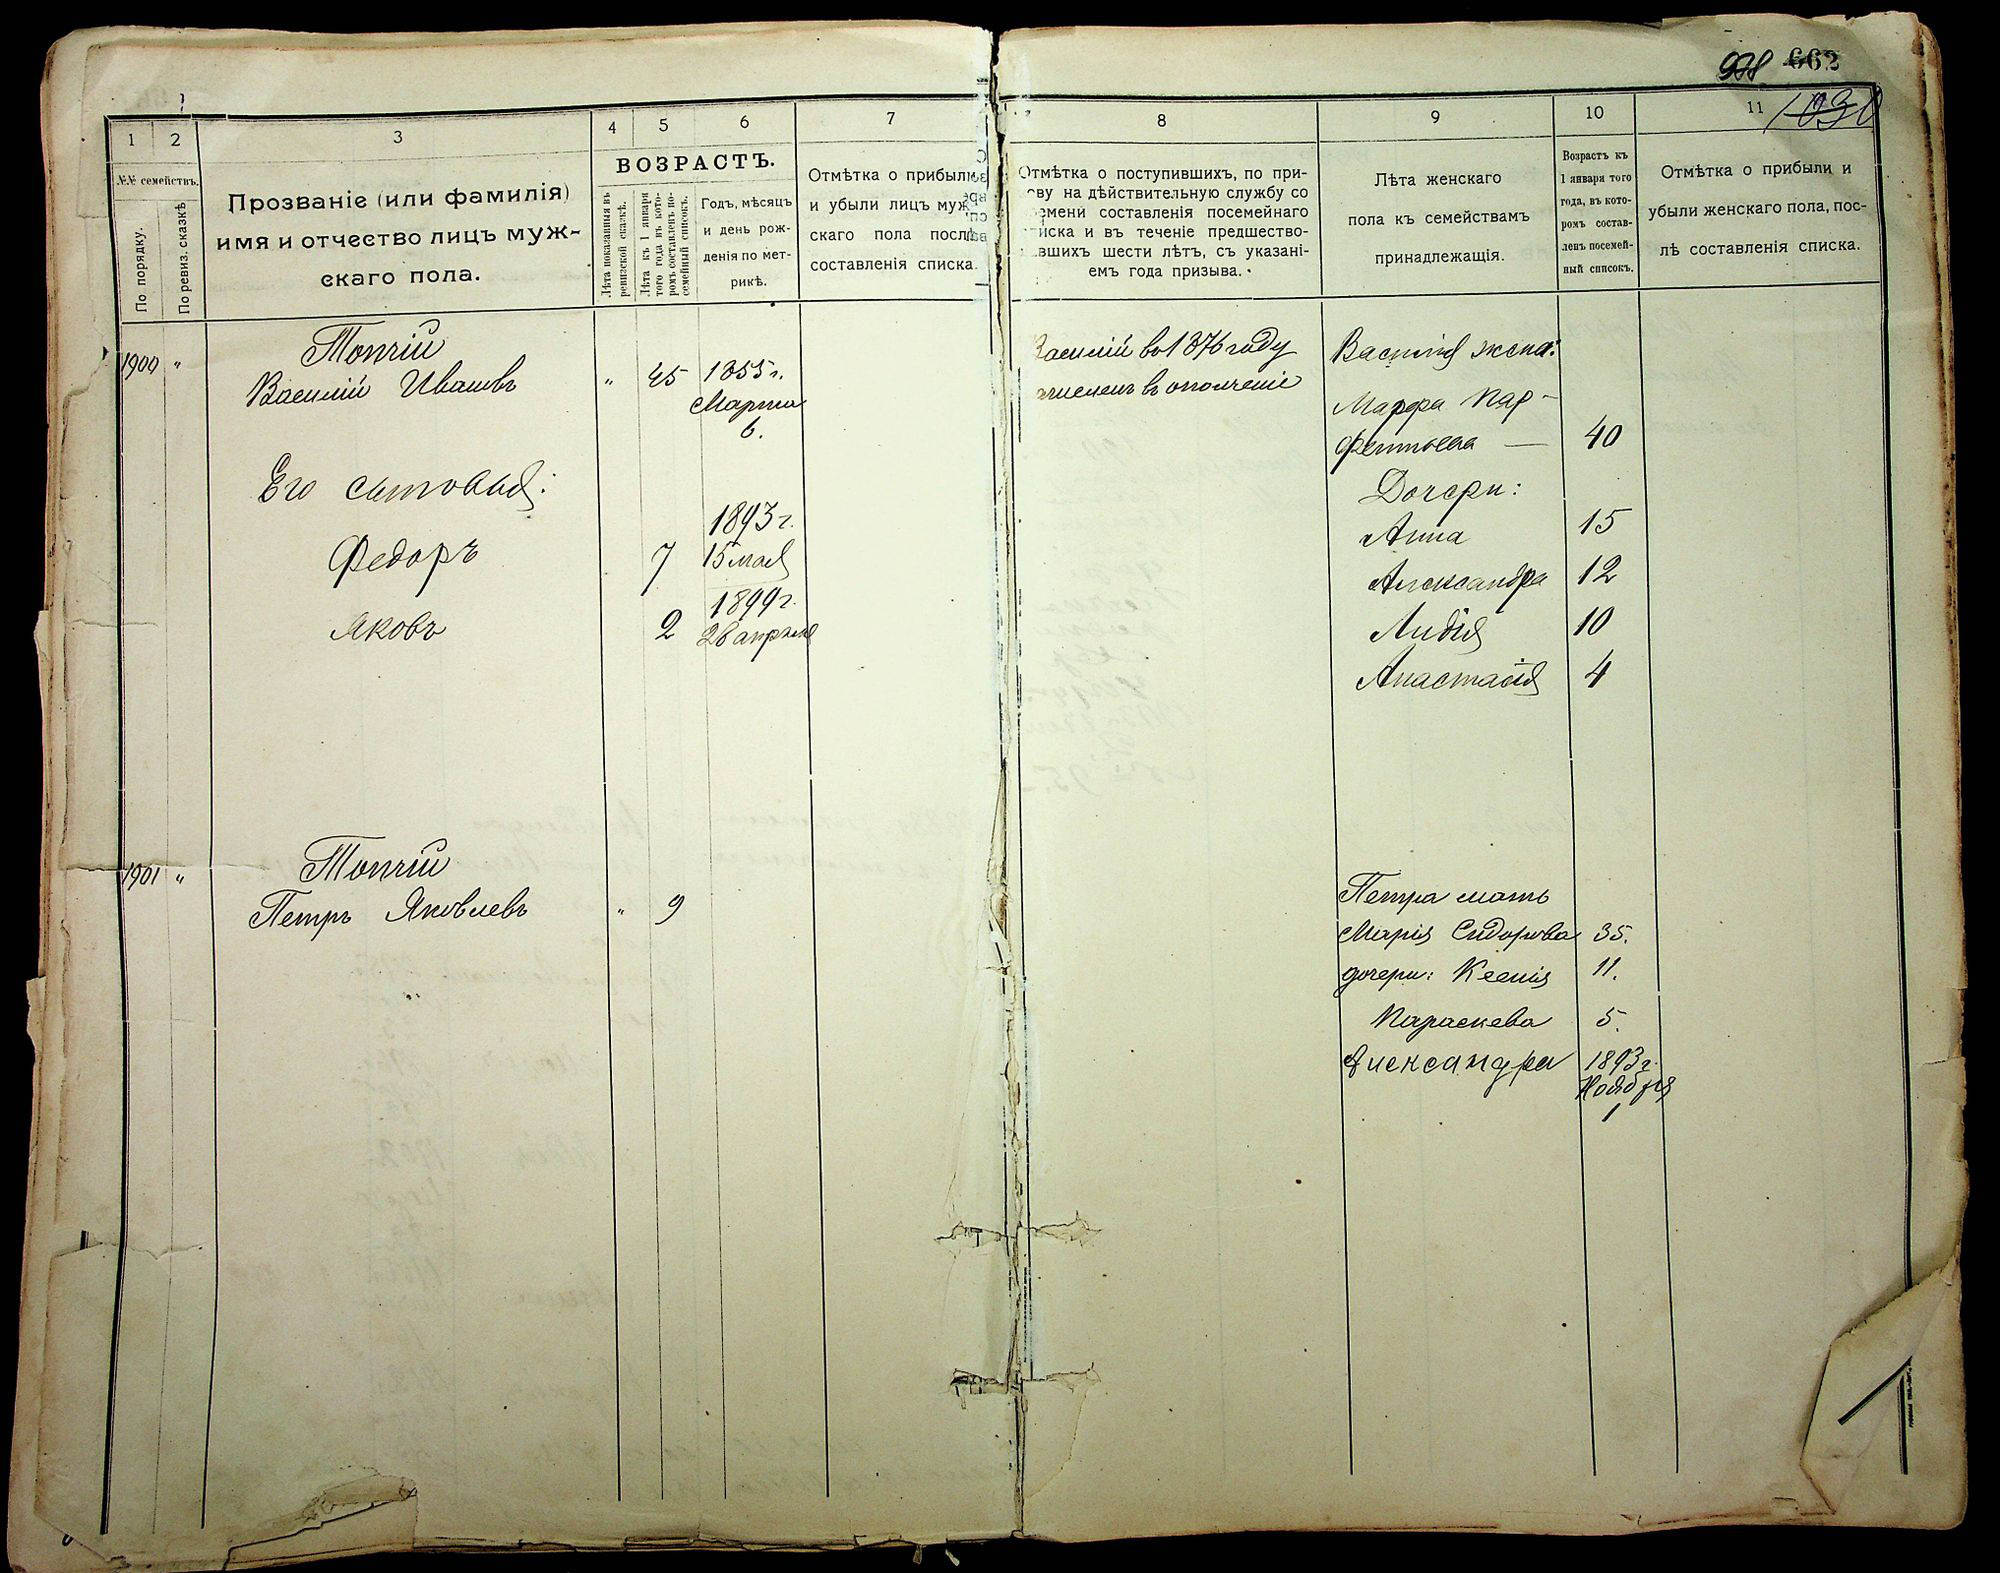 938 662
1030
1
2
3
4
5
6
7
8
9
10
11
№№ семействъ.
По порядку.
По ревиз. сказкѣ
Прозваніе (или фамилія)
имя и отчество лицъ муж-
скаго пола.
ВОЗРАСТЪ.
Лѣта показанныя въ
ревизской сказкѣ.
Лѣта къ 1 января
того года въ кото-
ромъ составленъ по-
семейный списокъ.
Годъ, мѣсяцъ
и день рож-
денія по мет-
рикѣ.
Отмѣтка о прибыли
и убыли лицъ муж-
скаго пола послѣ
составленія списка.
Отмѣтка о поступившихъ, по при-
ову на дѣйствительную службу со
емени составленія посемейнаго
иска и въ теченіе предшество-
вшихъ шести лѣтъ, съ указані-
емъ года призыва.
Лѣта женскаго
пола къ семействамъ
принадлежащія.
Возрастъ къ
1 января того
года, въ кото-
ромъ состав-
ленъ посемей-
ный списокъ.
Отмѣтка о прибыли и
убыли женскаго пола, пос-
лѣ составленія списка.
1900 „ Топчій
Василій Ивановъ „ 45 1855 г.
Марта
6.
Его сыновья:
1893 г.
Федоръ 7 15 мая
1899 г.
Яковъ 2 28 апрѣля
Василій въ 1876 году
зачисленъ въ ополченіе
Василія жена:
Марфа Пар-
фентьева — 40
Дочери:
Анна 15
Александра 12
Лидія 10
Анастасія 4
1901 „ Топчій
Петръ Яковлевъ „ 9
Петра мать
Марія Сидорова 35.
дочери: Ксенія 11.
Параскева 5.
Александра 1893 г.
Ноября
1